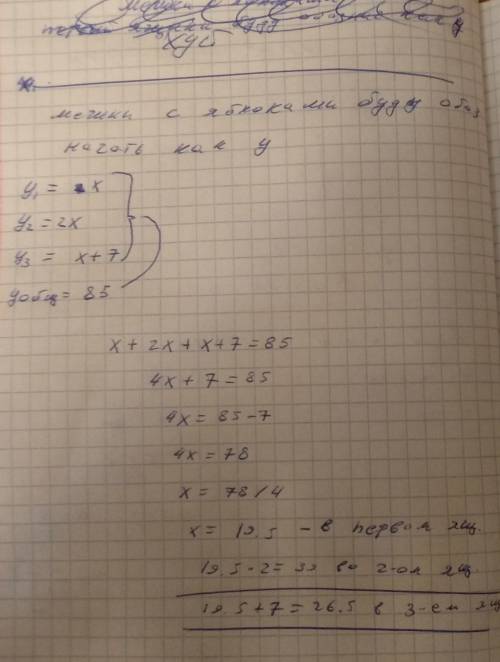 мешки с яблоками буду обоз
начать как y
y₁ = x
y₂ = 2x
y₃ = x+7
yобщ = 85
x + 2x + x + 7 = 85
4x + 7 = 85
4x = 85-7
4x = 78
x = 78/4
x = 19.5 - в первом ящ.
19.5-2=39 во 2-ом ящ.
19.5+7=26.5 в 3-ем ящ